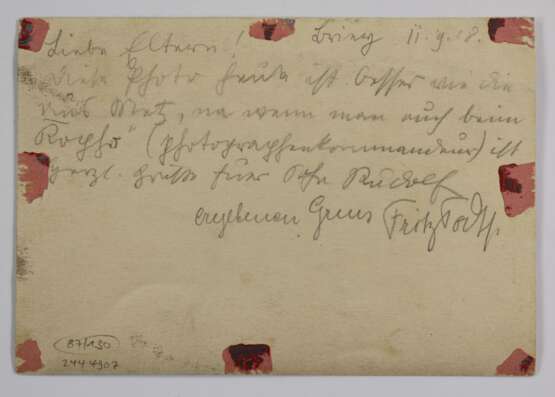 Liebe Eltern! Briey 11.9.18.
diese Photo heute ist besser wie die
aus Metz, na wenn man auch beim
"Kopho" (Photographenkommandeur) ist
Herzl. Grüße Euer Sohn Rudolf
ergebenen Gruss Fritz
87/190
2444907